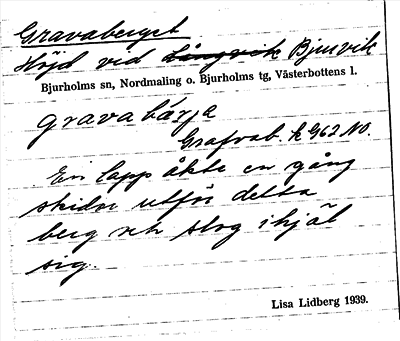 Gravaberget
Höjd vid Långvik Bjurvik
Bjurholms sn, Nordmaling o. Bjurholms tg, Västerbottens l.
gravabárja
Grafvab k G62 NO.
En lapp åkte en gång
skidor utför detta
berg och slog ihjäl
sig.
Lisa Lidberg 1939.